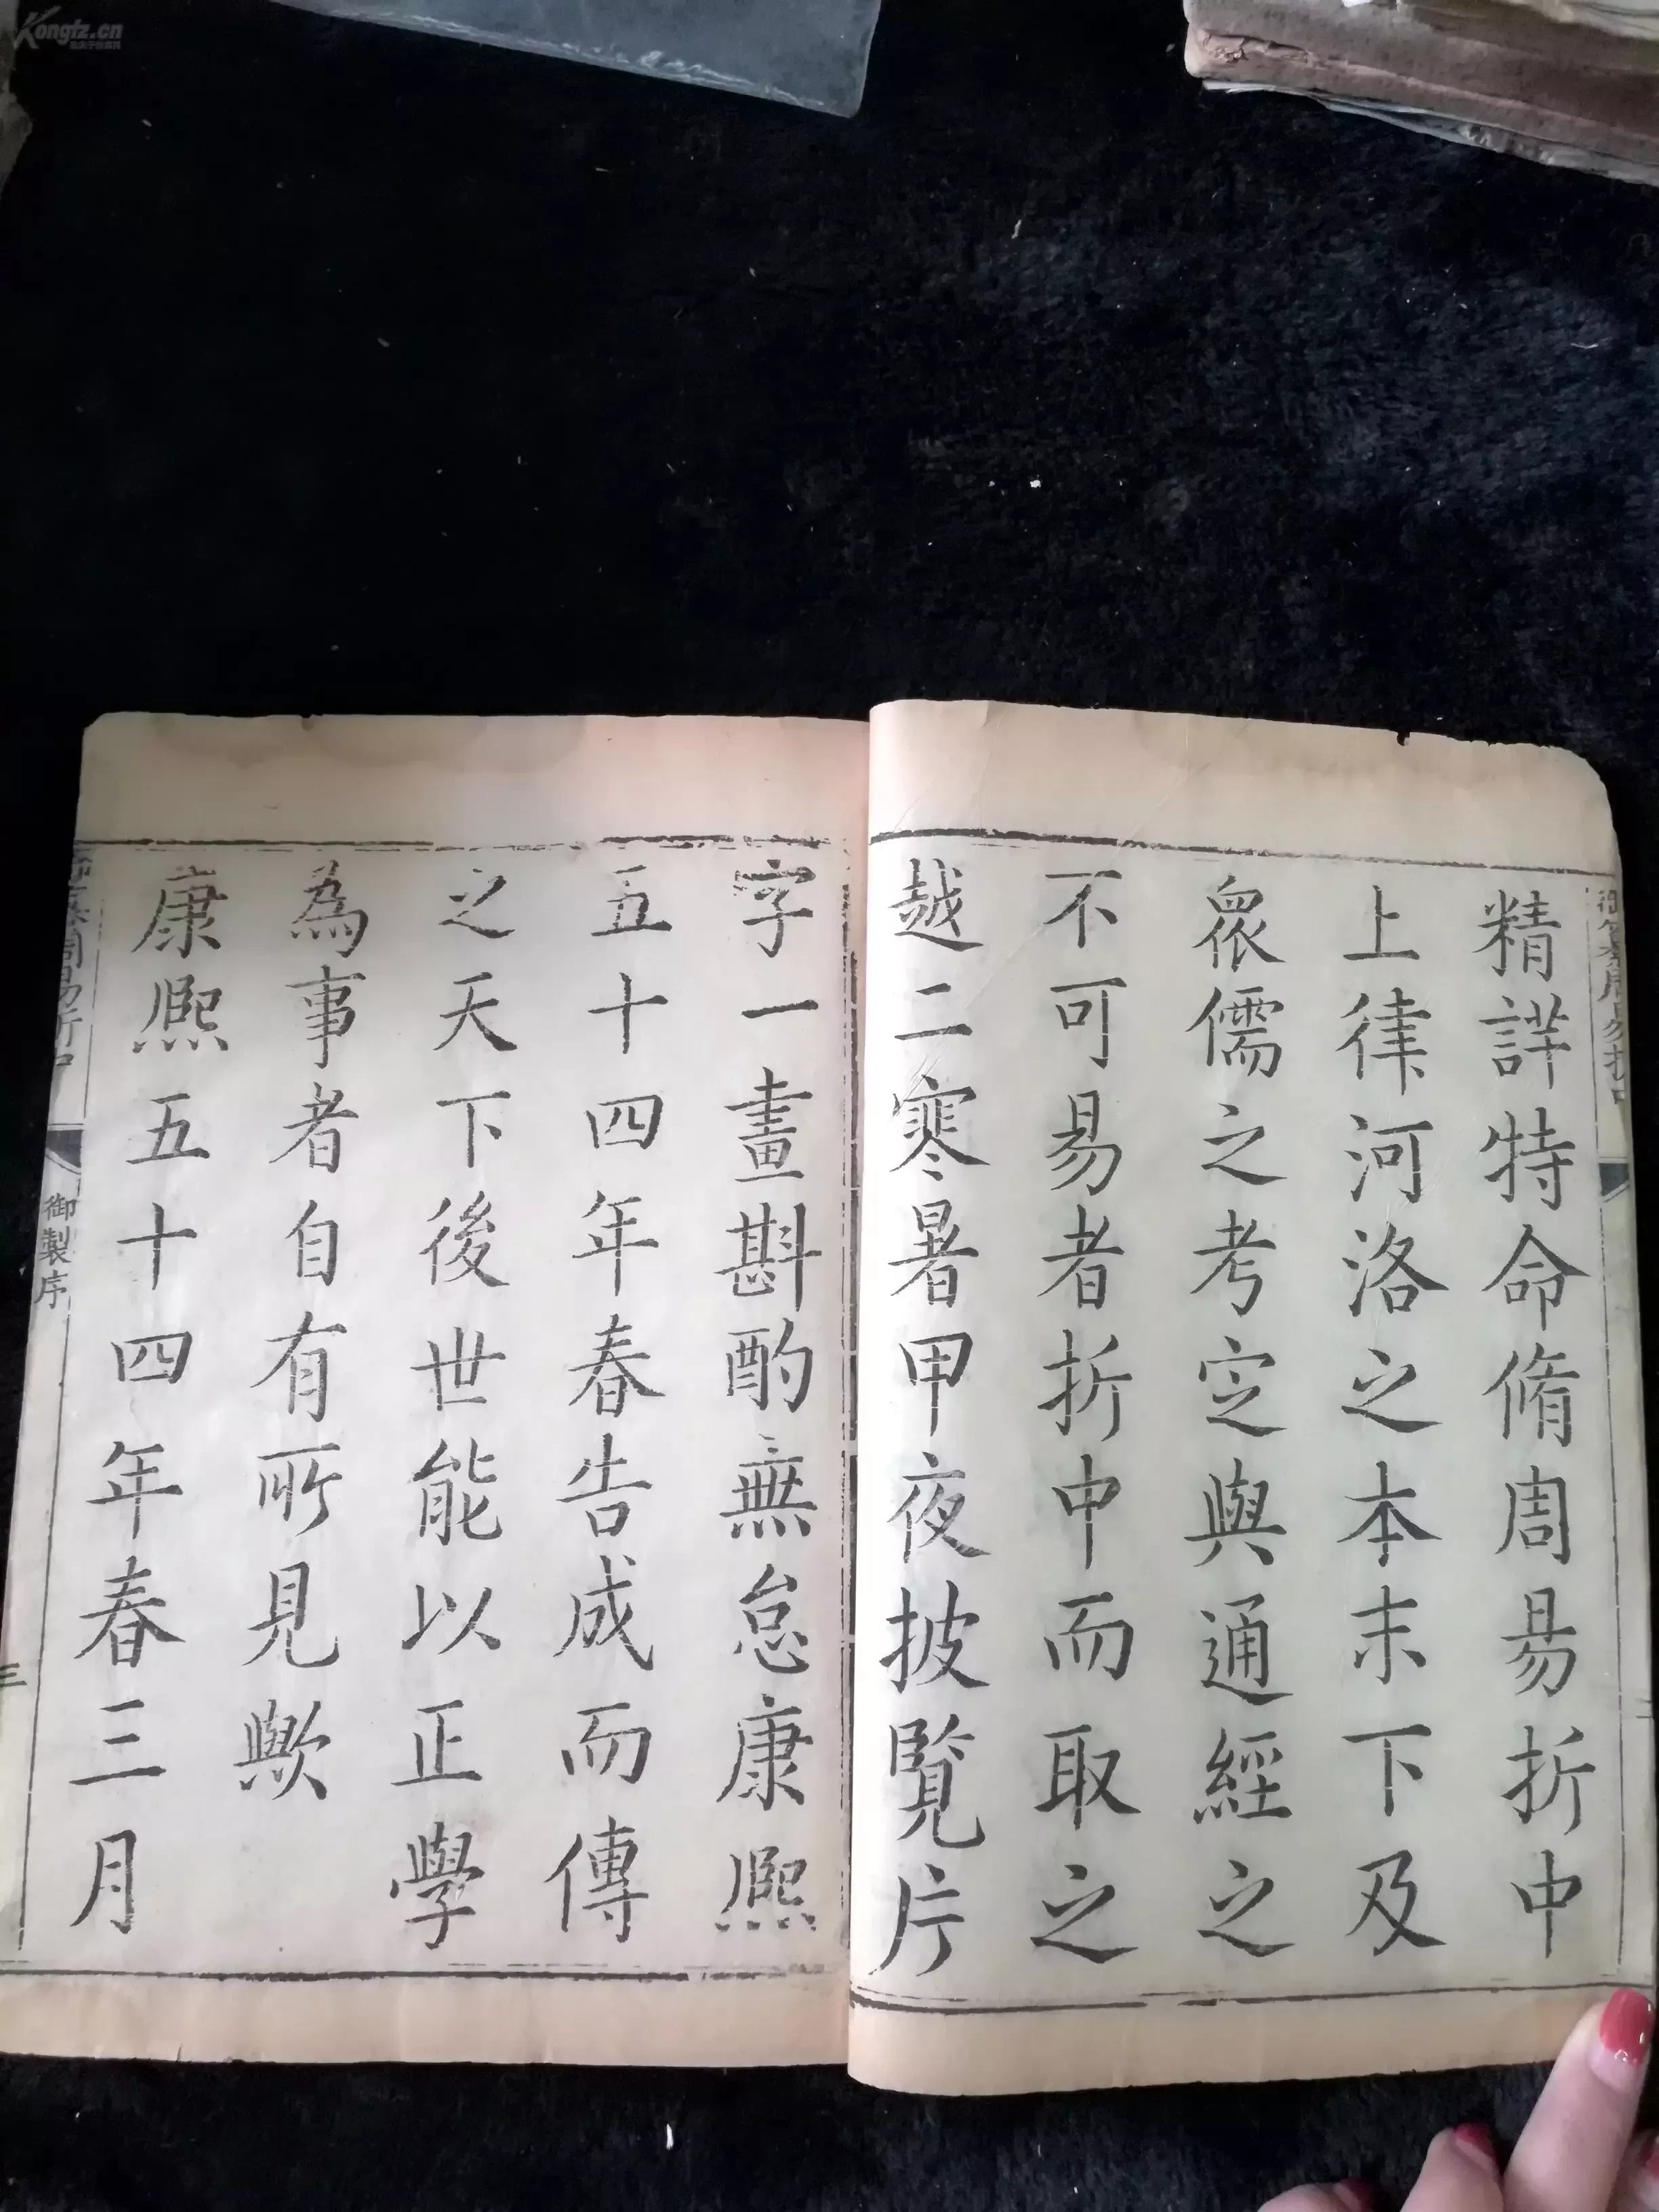 Kongfz.cn
精詳特命脩周易折中
上律河洛之本末下及
衆儒之考定與通經之
不可易者折中而取之
越二寒暑甲夜披覽片
字一畫斟酌無怠康熙
五十四年春告成而傳
之天下後世能以正學
為事者自有所見歟
康熙五十四年春三月
御製序
三